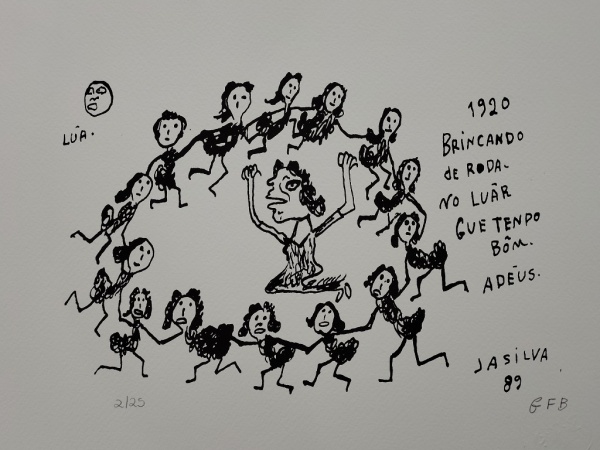 LUÂ.
1920
BRINCANDO
de RODA.
NO LUÂR
GUE TENPO
BÔM.
ADEÙS.
JASILVA
89
2/25
G F B